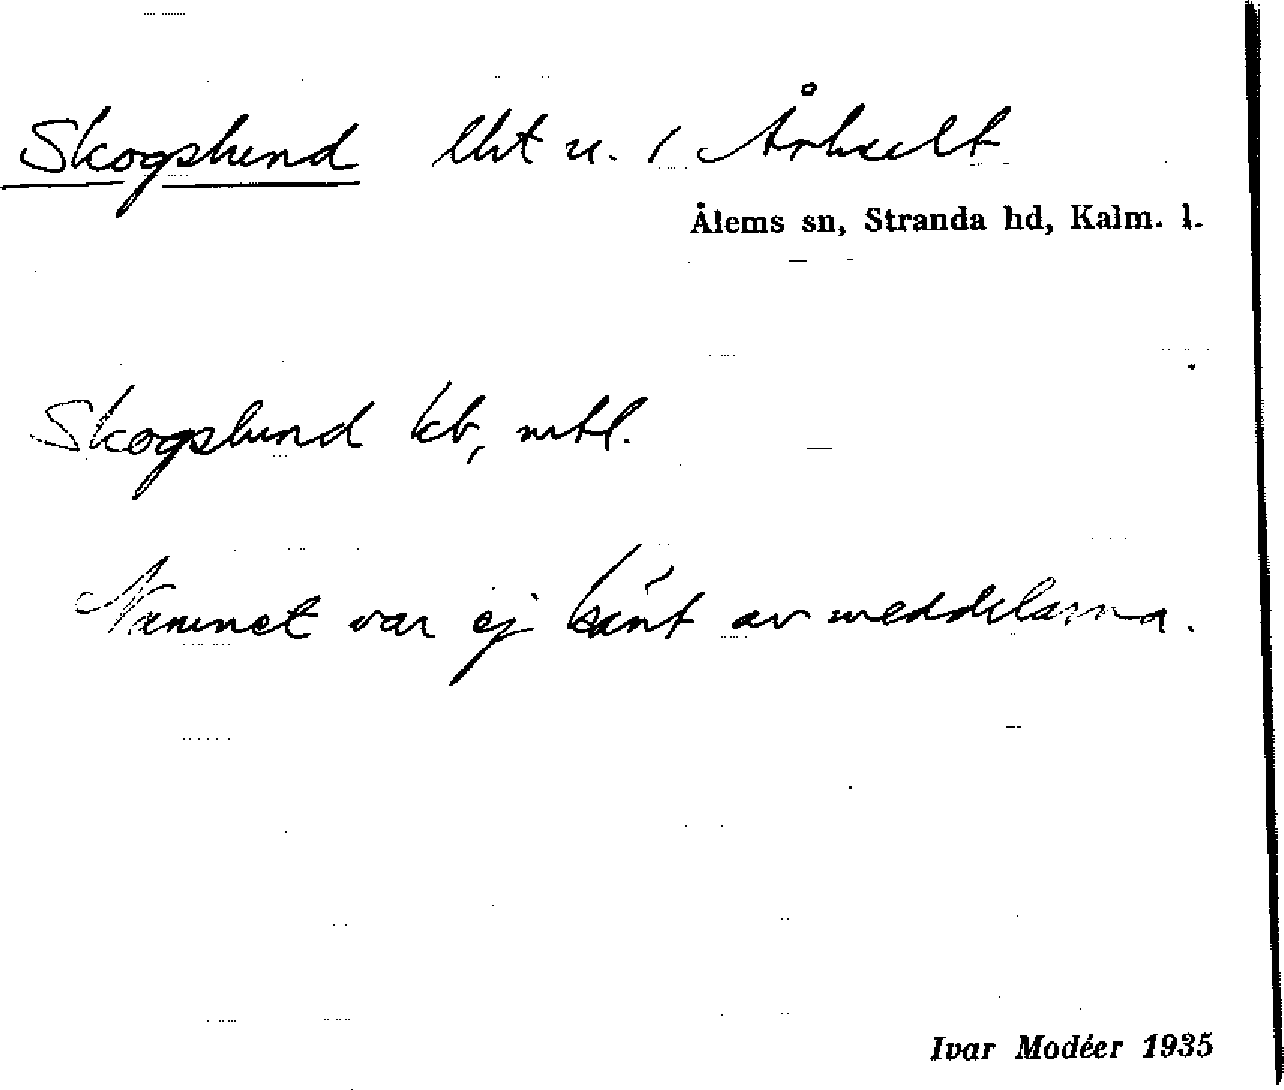 Skogslund lht u. / Århult
Ålems sn, Stranda hd, Kalm. l.
Skogslund kb, mtl.
Namnet var ej känt av meddelarna.
Ivar Modéer 1935